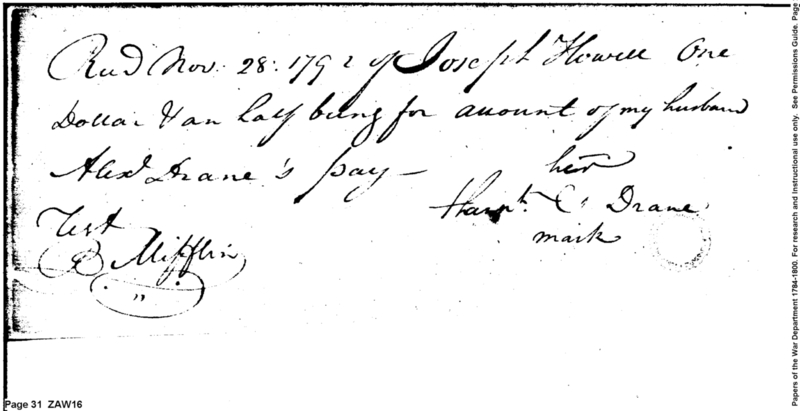 Recd Nov. 28. 1792 of Joseph Howell One
Dollar & an half being for amount of my husband
Alexr Drane's pay –
her
Hanh. C Drane
mark
Test
B Mifflin
Page 31 ZAW16
Papers of the War Department 1784-1800. For research and instructional use only. See Permissions Guide. Page